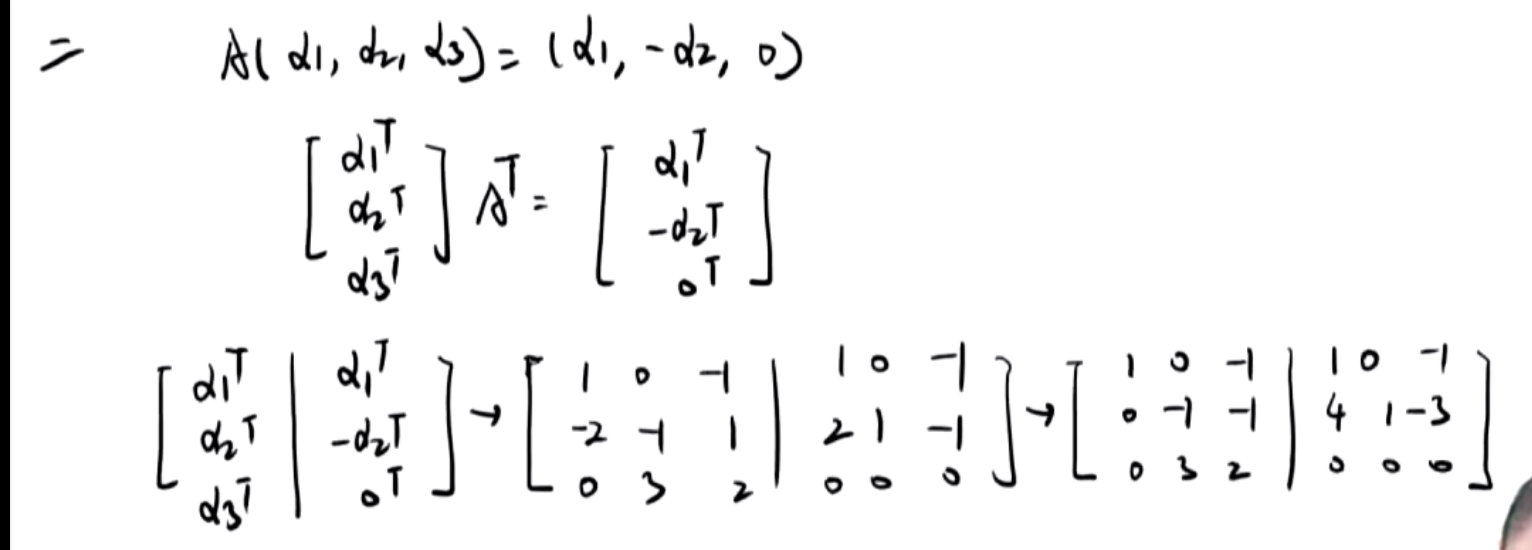 = A(α1, α2, α3) = (α1, -α2, 0)
[α1ᵀ; α2ᵀ; α3ᵀ] Aᵀ = [α1ᵀ; -α2ᵀ; 0ᵀ]
[α1ᵀ | α1ᵀ; α2ᵀ | -α2ᵀ; α3ᵀ | 0ᵀ] → [1 0 -1 | 1 0 -1; -2 -1 1 | 2 1 -1; 0 3 2 | 0 0 0] → [1 0 -1 | 1 0 -1; 0 -1 -1 | 4 1 -3; 0 3 2 | 0 0 0]